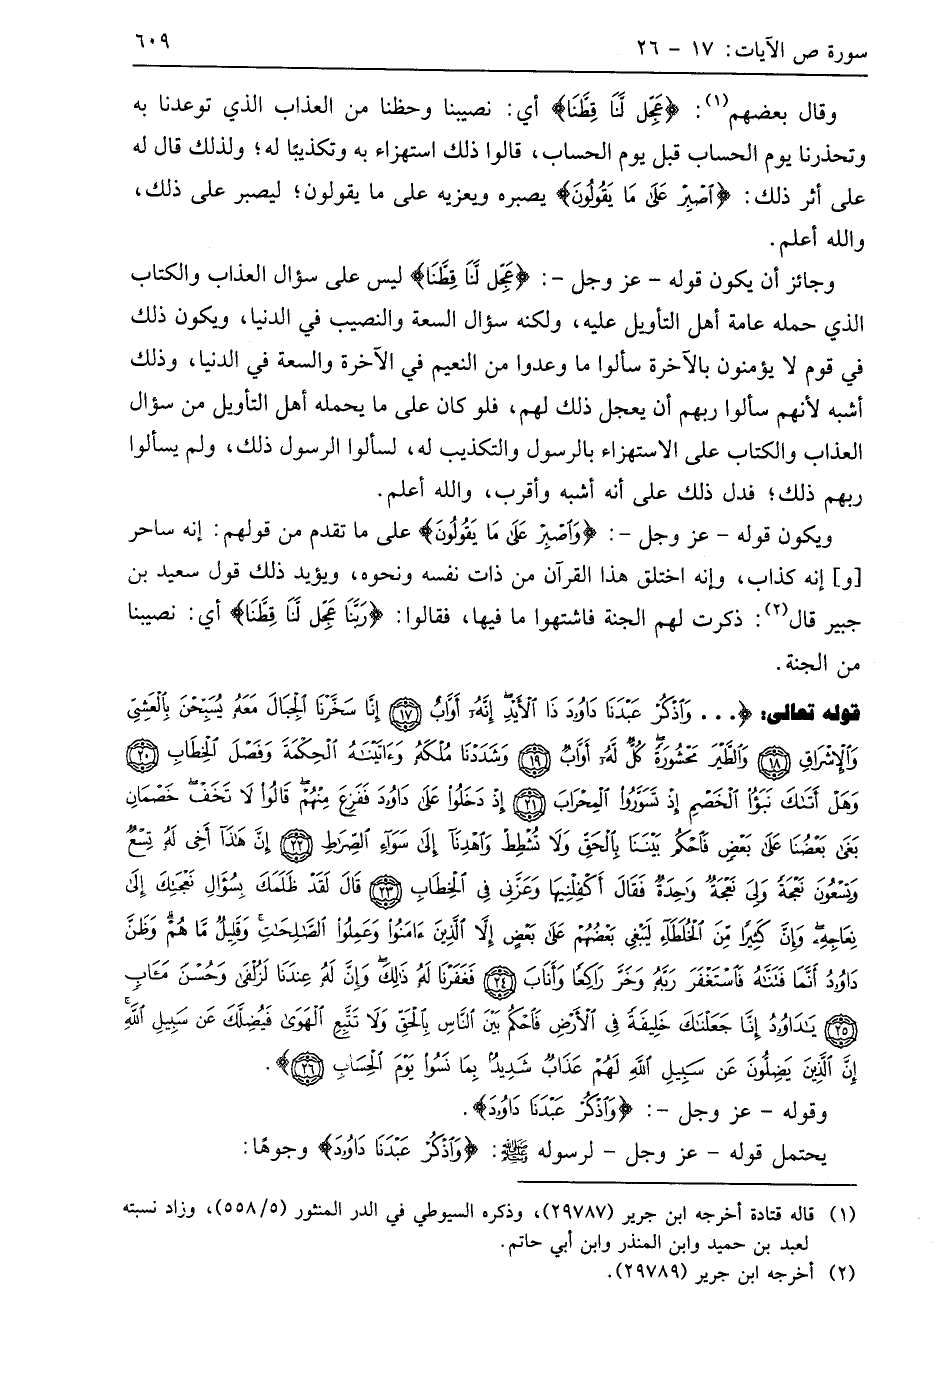 سورة ص الآيات: ١٧ - ٢٦
٦٠٩
وقال بعضهم(١): ﴿عَجِّل لَّنَا قِطَّنَا﴾ أي: نصيبنا وحظنا من العذاب الذي توعدنا به
وتحذرنا يوم الحساب قبل يوم الحساب، قالوا ذلك استهزاء به وتكذيبًا له؛ ولذلك قال له
على أثر ذلك: ﴿ٱصۡبِرۡ عَلَىٰ مَا يَقُولُونَ﴾ يصبره ويعزيه على ما يقولون؛ ليصبر على ذلك،
والله أعلم.
وجائز أن يكون قوله - عز وجل -: ﴿عَجِّل لَّنَا قِطَّنَا﴾ ليس على سؤال العذاب والكتاب
الذي حمله عامة أهل التأويل عليه، ولكنه سؤال السعة والنصيب في الدنيا، ويكون ذلك
في قوم لا يؤمنون بالآخرة سألوا ما وعدوا من النعيم في الآخرة والسعة في الدنيا، وذلك
أشبه لأنهم سألوا ربهم أن يعجل ذلك لهم، فلو كان على ما يحمله أهل التأويل من سؤال
العذاب والكتاب على الاستهزاء بالرسول والتكذيب له، لسألوا الرسول ذلك، ولم يسألوا
ربهم ذلك؛ فدل ذلك على أنه أشبه وأقرب، والله أعلم.
ويكون قوله - عز وجل -: ﴿وَٱصۡبِرۡ عَلَىٰ مَا يَقُولُونَ﴾ على ما تقدم من قولهم: إنه ساحر
[و] إنه كذاب، وإنه اختلق هذا القرآن من ذات نفسه ونحوه، ويؤيد ذلك قول سعيد بن
جبير قال(٢): ذكرت لهم الجنة فاشتهوا ما فيها، فقالوا: ﴿رَبَّنَا عَجِّل لَّنَا قِطَّنَا﴾ أي: نصيبنا
من الجنة.
قوله تعالى: ﴿... وَٱذۡكُرۡ عَبۡدَنَا دَاوُۥدَ ذَا ٱلۡأَيۡدِۖ إِنَّهُۥٓ أَوَّابٌ ١٧ إِنَّا سَخَّرۡنَا ٱلۡجِبَالَ مَعَهُۥ يُسَبِّحۡنَ بِٱلۡعَشِيِّ
وَٱلۡإِشۡرَاقِ ١٨ وَٱلطَّيۡرَ مَحۡشُورَةٗۖ كُلّٞ لَّهُۥٓ أَوَّابٞ ١٩ وَشَدَدۡنَا مُلۡكَهُۥ وَءَاتَيۡنَٰهُ ٱلۡحِكۡمَةَ وَفَصۡلَ ٱلۡخِطَابِ ٢٠
وَهَلۡ أَتَىٰكَ نَبَؤُاْ ٱلۡخَصۡمِ إِذۡ تَسَوَّرُواْ ٱلۡمِحۡرَابَ ٢١ إِذۡ دَخَلُواْ عَلَىٰ دَاوُۥدَ فَفَزِعَ مِنۡهُمۡۖ قَالُواْ لَا تَخَفۡۖ خَصۡمَانِ
بَغَىٰ بَعۡضُنَا عَلَىٰ بَعۡضٖ فَٱحۡكُم بَيۡنَنَا بِٱلۡحَقِّ وَلَا تُشۡطِطۡ وَٱهۡدِنَآ إِلَىٰ سَوَآءِ ٱلصِّرَٰطِ ٢٢ إِنَّ هَٰذَآ أَخِي لَهُۥ تِسۡعٞ
وَتِسۡعُونَ نَعۡجَةٗ وَلِيَ نَعۡجَةٞ وَٰحِدَةٞ فَقَالَ أَكۡفِلۡنِيهَا وَعَزَّنِي فِي ٱلۡخِطَابِ ٢٣ قَالَ لَقَدۡ ظَلَمَكَ بِسُؤَالِ نَعۡجَتِكَ إِلَىٰ
نِعَاجِهِۦۖ وَإِنَّ كَثِيرٗا مِّنَ ٱلۡخُلَطَآءِ لَيَبۡغِي بَعۡضُهُمۡ عَلَىٰ بَعۡضٍ إِلَّا ٱلَّذِينَ ءَامَنُواْ وَعَمِلُواْ ٱلصَّٰلِحَٰتِ وَقَلِيلٞ مَّا هُمۡۗ وَظَنَّ
دَاوُۥدُ أَنَّمَا فَتَنَّٰهُ فَٱسۡتَغۡفَرَ رَبَّهُۥ وَخَرَّۤ رَاكِعٗاۤ وَأَنَابَ ٢٤ فَغَفَرۡنَا لَهُۥ ذَٰلِكَۖ وَإِنَّ لَهُۥ عِندَنَا لَزُلۡفَىٰ وَحُسۡنَ مَـَٔابٖ
٢٥ يَٰدَاوُۥدُ إِنَّا جَعَلۡنَٰكَ خَلِيفَةٗ فِي ٱلۡأَرۡضِ فَٱحۡكُم بَيۡنَ ٱلنَّاسِ بِٱلۡحَقِّ وَلَا تَتَّبِعِ ٱلۡهَوَىٰ فَيُضِلَّكَ عَن سَبِيلِ ٱللَّهِۚ
إِنَّ ٱلَّذِينَ يَضِلُّونَ عَن سَبِيلِ ٱللَّهِ لَهُمۡ عَذَابٞ شَدِيدُۢ بِمَا نَسُواْ يَوۡمَ ٱلۡحِسَابِ ٢٦﴾.
وقوله - عز وجل -: ﴿وَٱذۡكُرۡ عَبۡدَنَا دَاوُۥدَ﴾.
يحتمل قوله - عز وجل - لرسوله ﷺ: ﴿وَٱذۡكُرۡ عَبۡدَنَا دَاوُۥدَ﴾ وجوهًا:
(١) قاله قتادة أخرجه ابن جرير (٢٩٧٨٧)، وذكره السيوطي في الدر المنثور (٥/ ٥٥٨)، وزاد نسبته
لعبد بن حميد وابن المنذر وابن أبي حاتم.
(٢) أخرجه ابن جرير (٢٩٧٨٩).